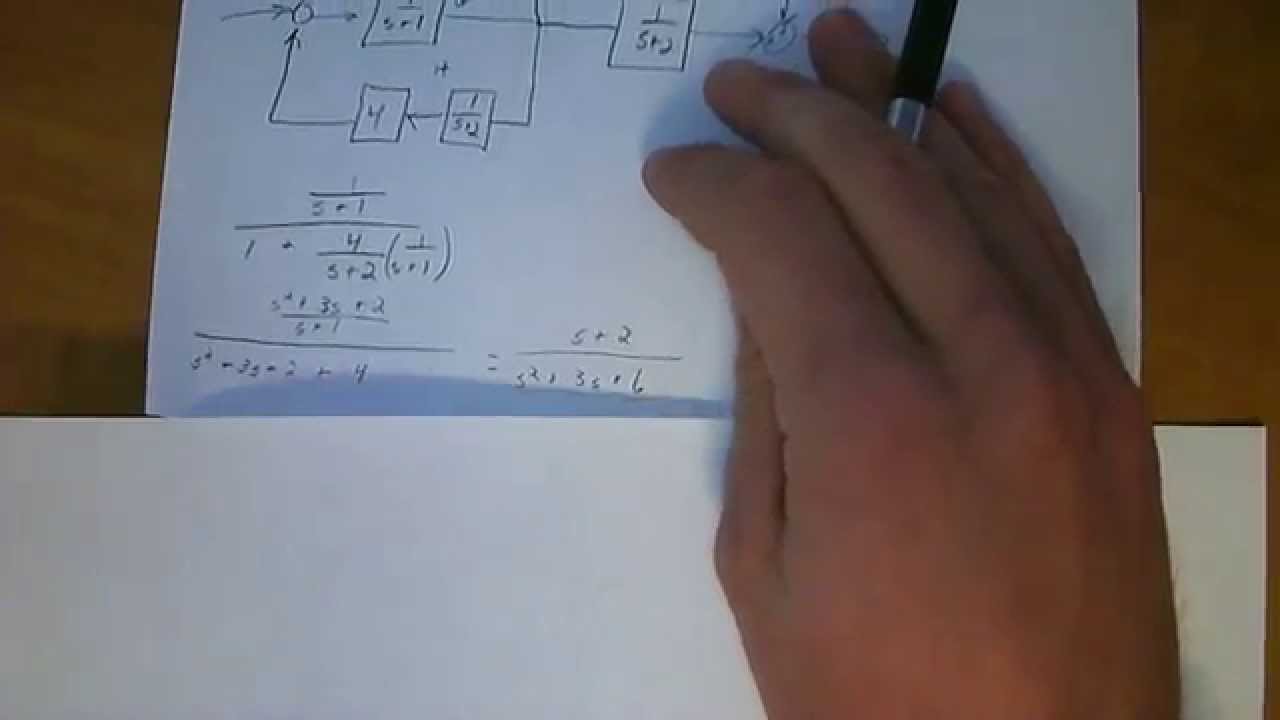 1/(s+1) 1/(s+2)
H
4 1/(s+2)
1/(s+1)
1 + 4/(s+2) (1/(s+1))
(s²+3s+2)/(s+1)
s²+3s+2 + 4 = (s+2)/(s²+3s+6)